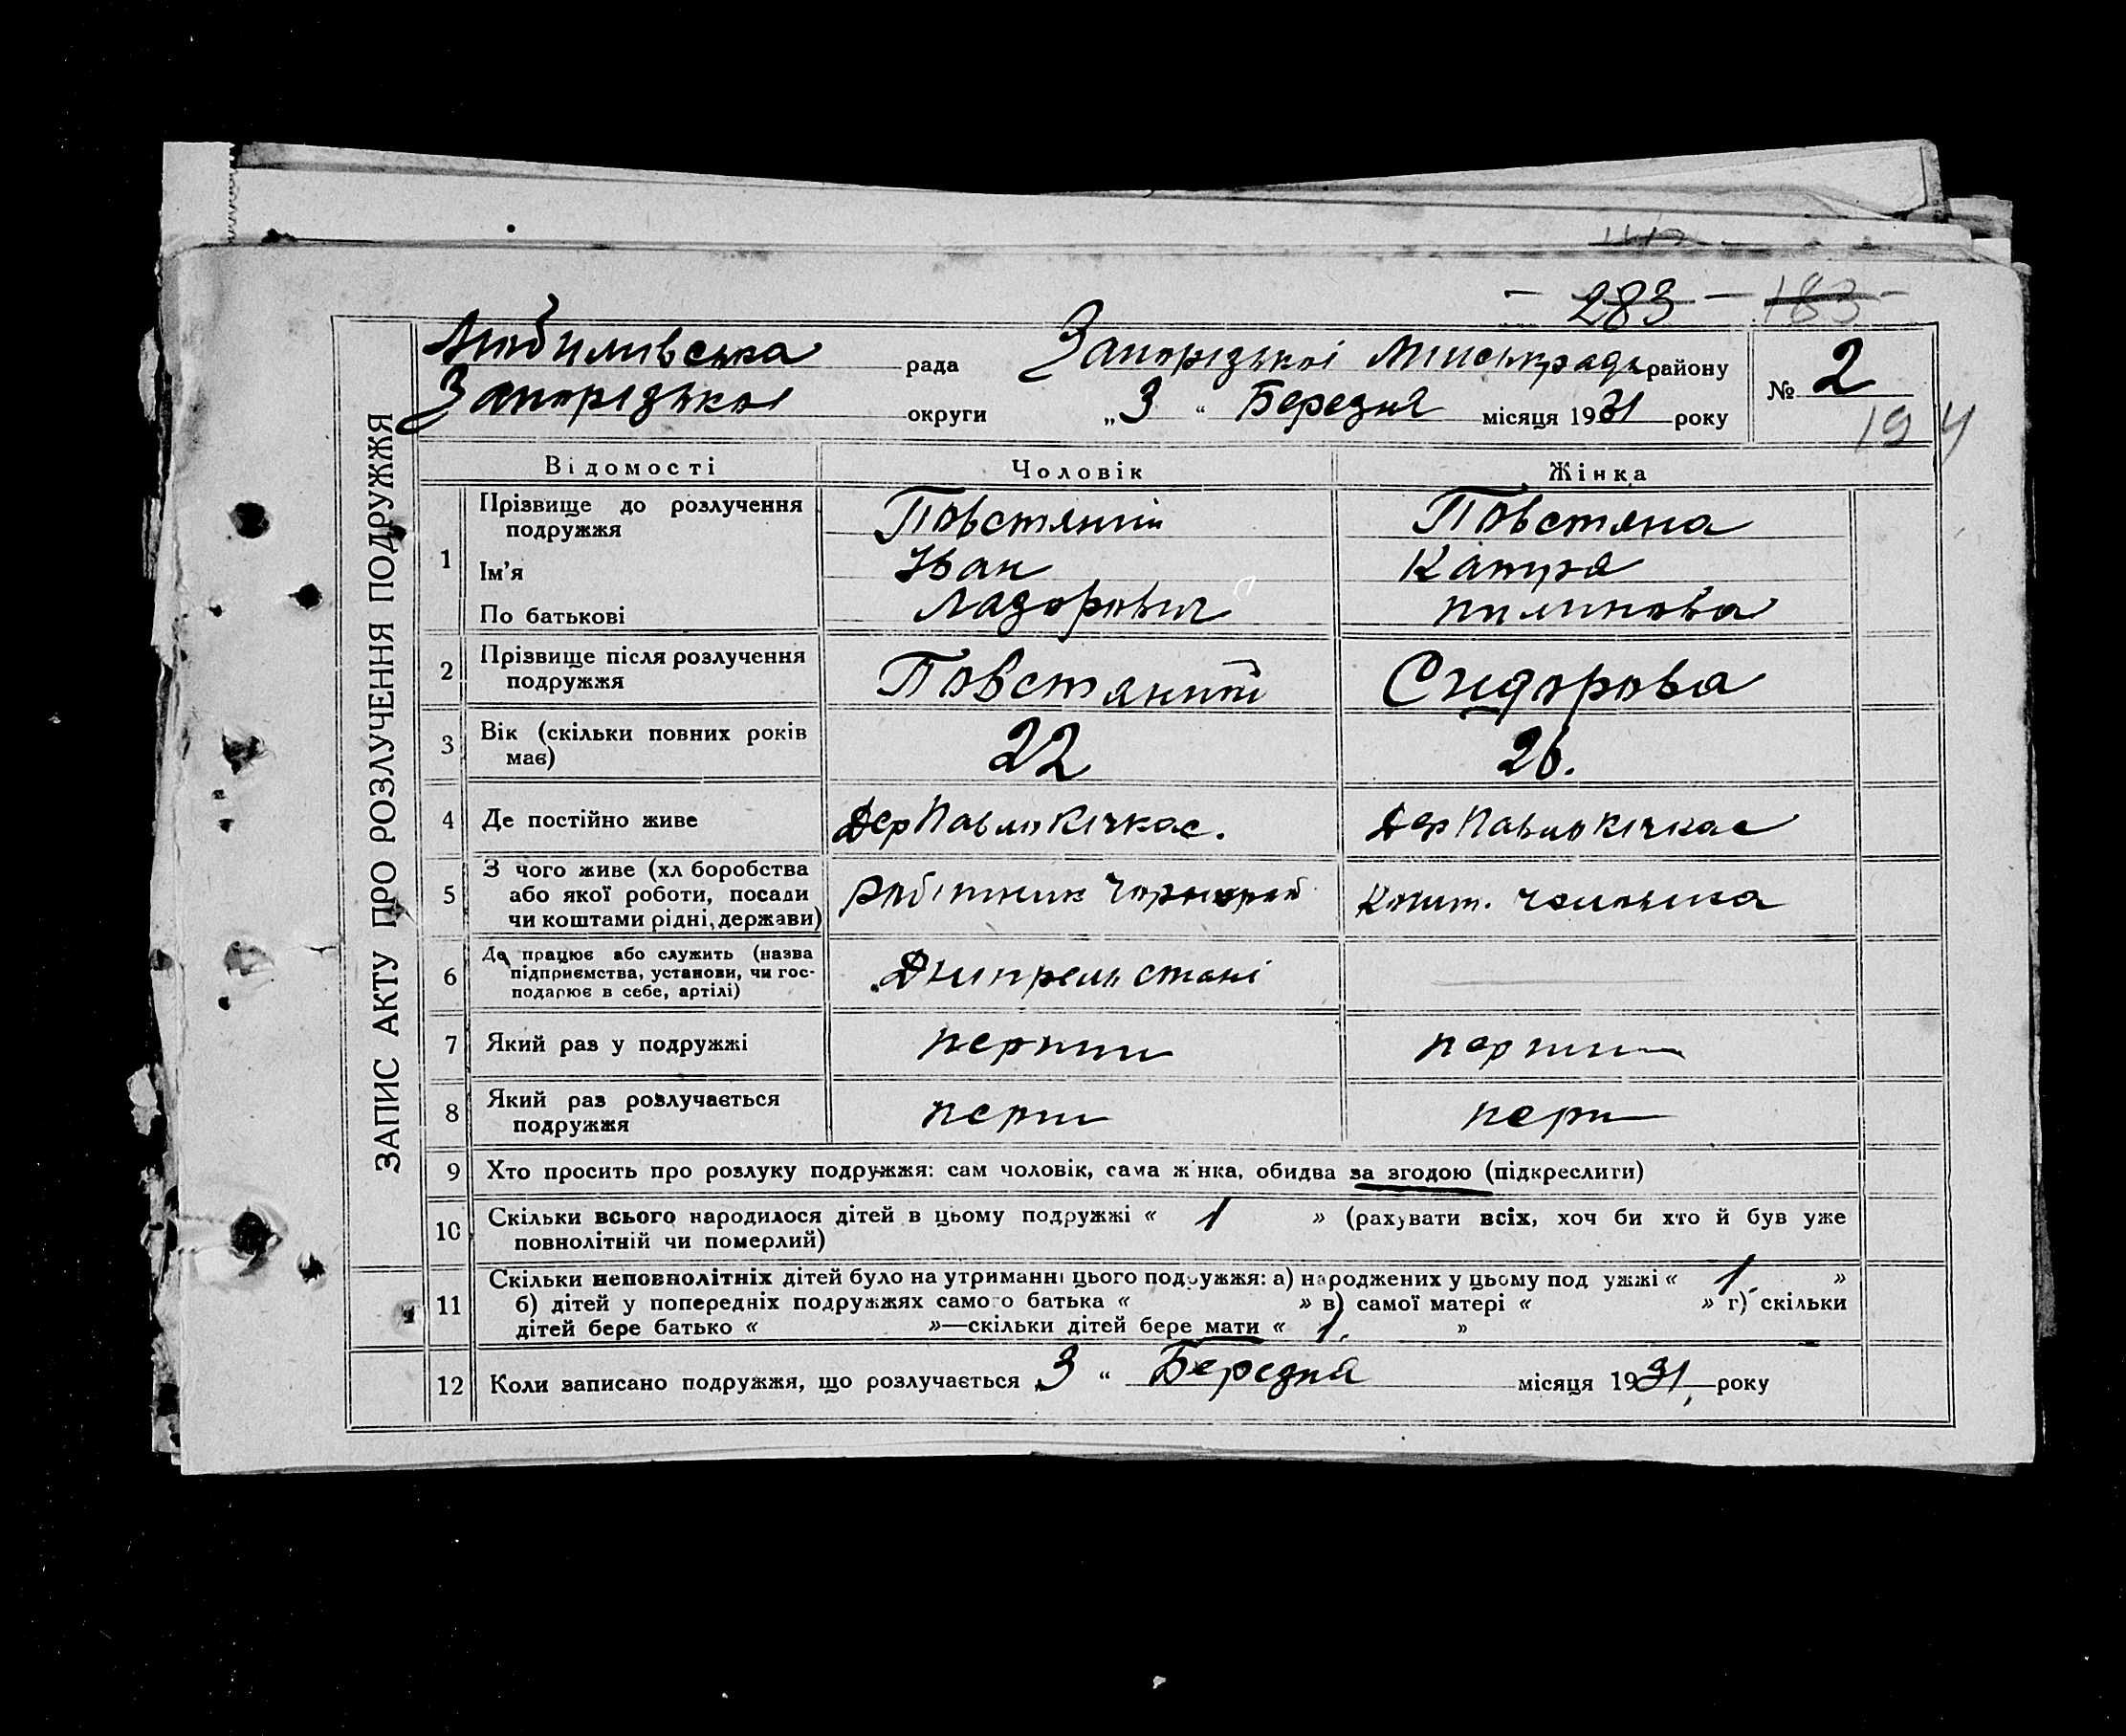 283 183
Запорізької Міськради району
рада
№ 2
Запорізької округи „3“ Березня місяця 1931 року
194
ЗАПИС АКТУ ПРО РОЗЛУЧЕННЯ ПОДРУЖЖЯ
Відомості Чоловік Жінка
1 Прізвище до розлучення подружжя Повстяний Повстяна
Ім’я Іван Катря
По батькові Лазорович
2 Прізвище після розлучення подружжя Повстяний Сидорова
3 Вік (скільки повних років має) 22 26.
4 Де постійно живе Дер Павло Кічкас. Дер Павло Кічкас
5 З чого живе (хл боробства або якої роботи, посади чи коштами рідні, держави) Робітник Чорнороб Кошт. чоловіка
6 Де працює або служить (назва підприємства, установи, чи господарює в себе, артілі)
7 Який раз у подружжі перший перший
8 Який раз розлучається подружжя перш перш
9 Хто просить про розлуку подружжя: сам чоловік, сама жінка, обидва за згодою (підкреслити)
10 Скільки всього народилося дітей в цьому подружжі « 1 » (рахувати всіх, хоч би хто й був уже
повнолітній чи померлий)
11 Скільки неповнолітніх дітей було на утриманні цього подружжя: а) народжених у цьому под ужжі « 1. »
б) дітей у попередніх подружжях самого батька « » в) самої матері « » г) скільки
дітей бере батько « »—скільки дітей бере мати « 1. »
12 Коли записано подружжя, що розлучається „3“ Березня місяця 1931, року